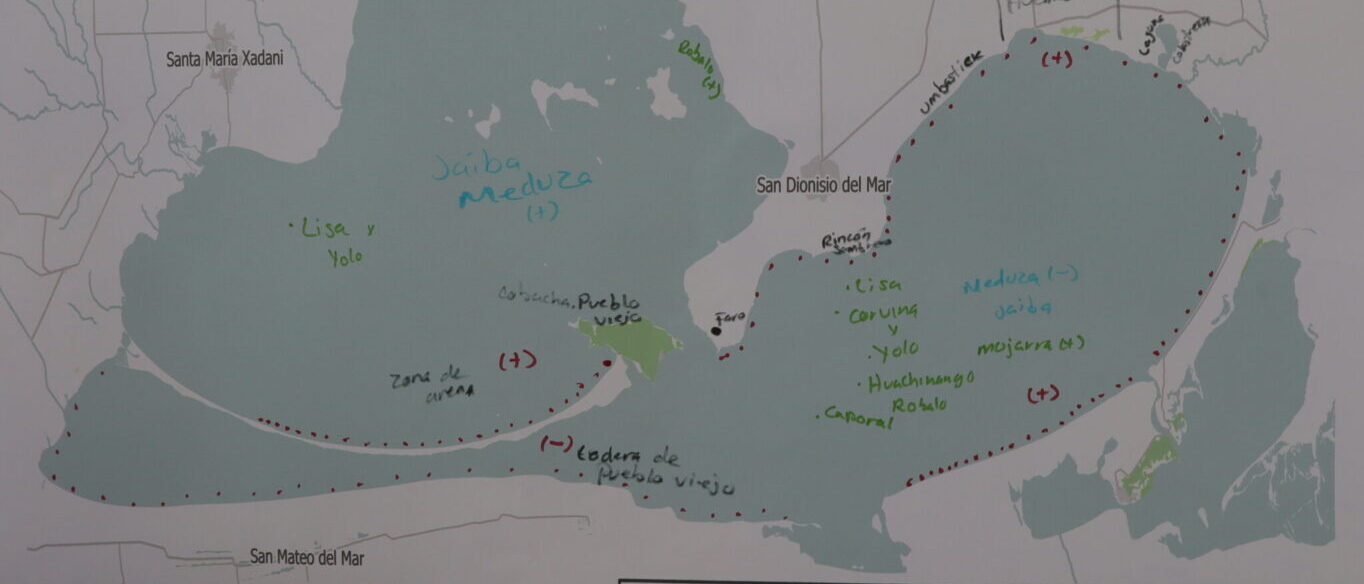 Santa María Xadani
Robalo
(+)
umbastiek
(+)
Laguna
Jaiba
Meduza
(+)
San Dionisio del Mar
• Lisa y
Yolo
Rincón
Pueblo
viejo
Faro
• Lisa
• Corvina
y
• Yolo
• Huachinango
Robalo
• Caporal
Meduza (-)
Jaiba
mojarra (+)
(+)
Zona de
arena
(+)
(-)
Lodera de
pueblo viejo
San Mateo del Mar